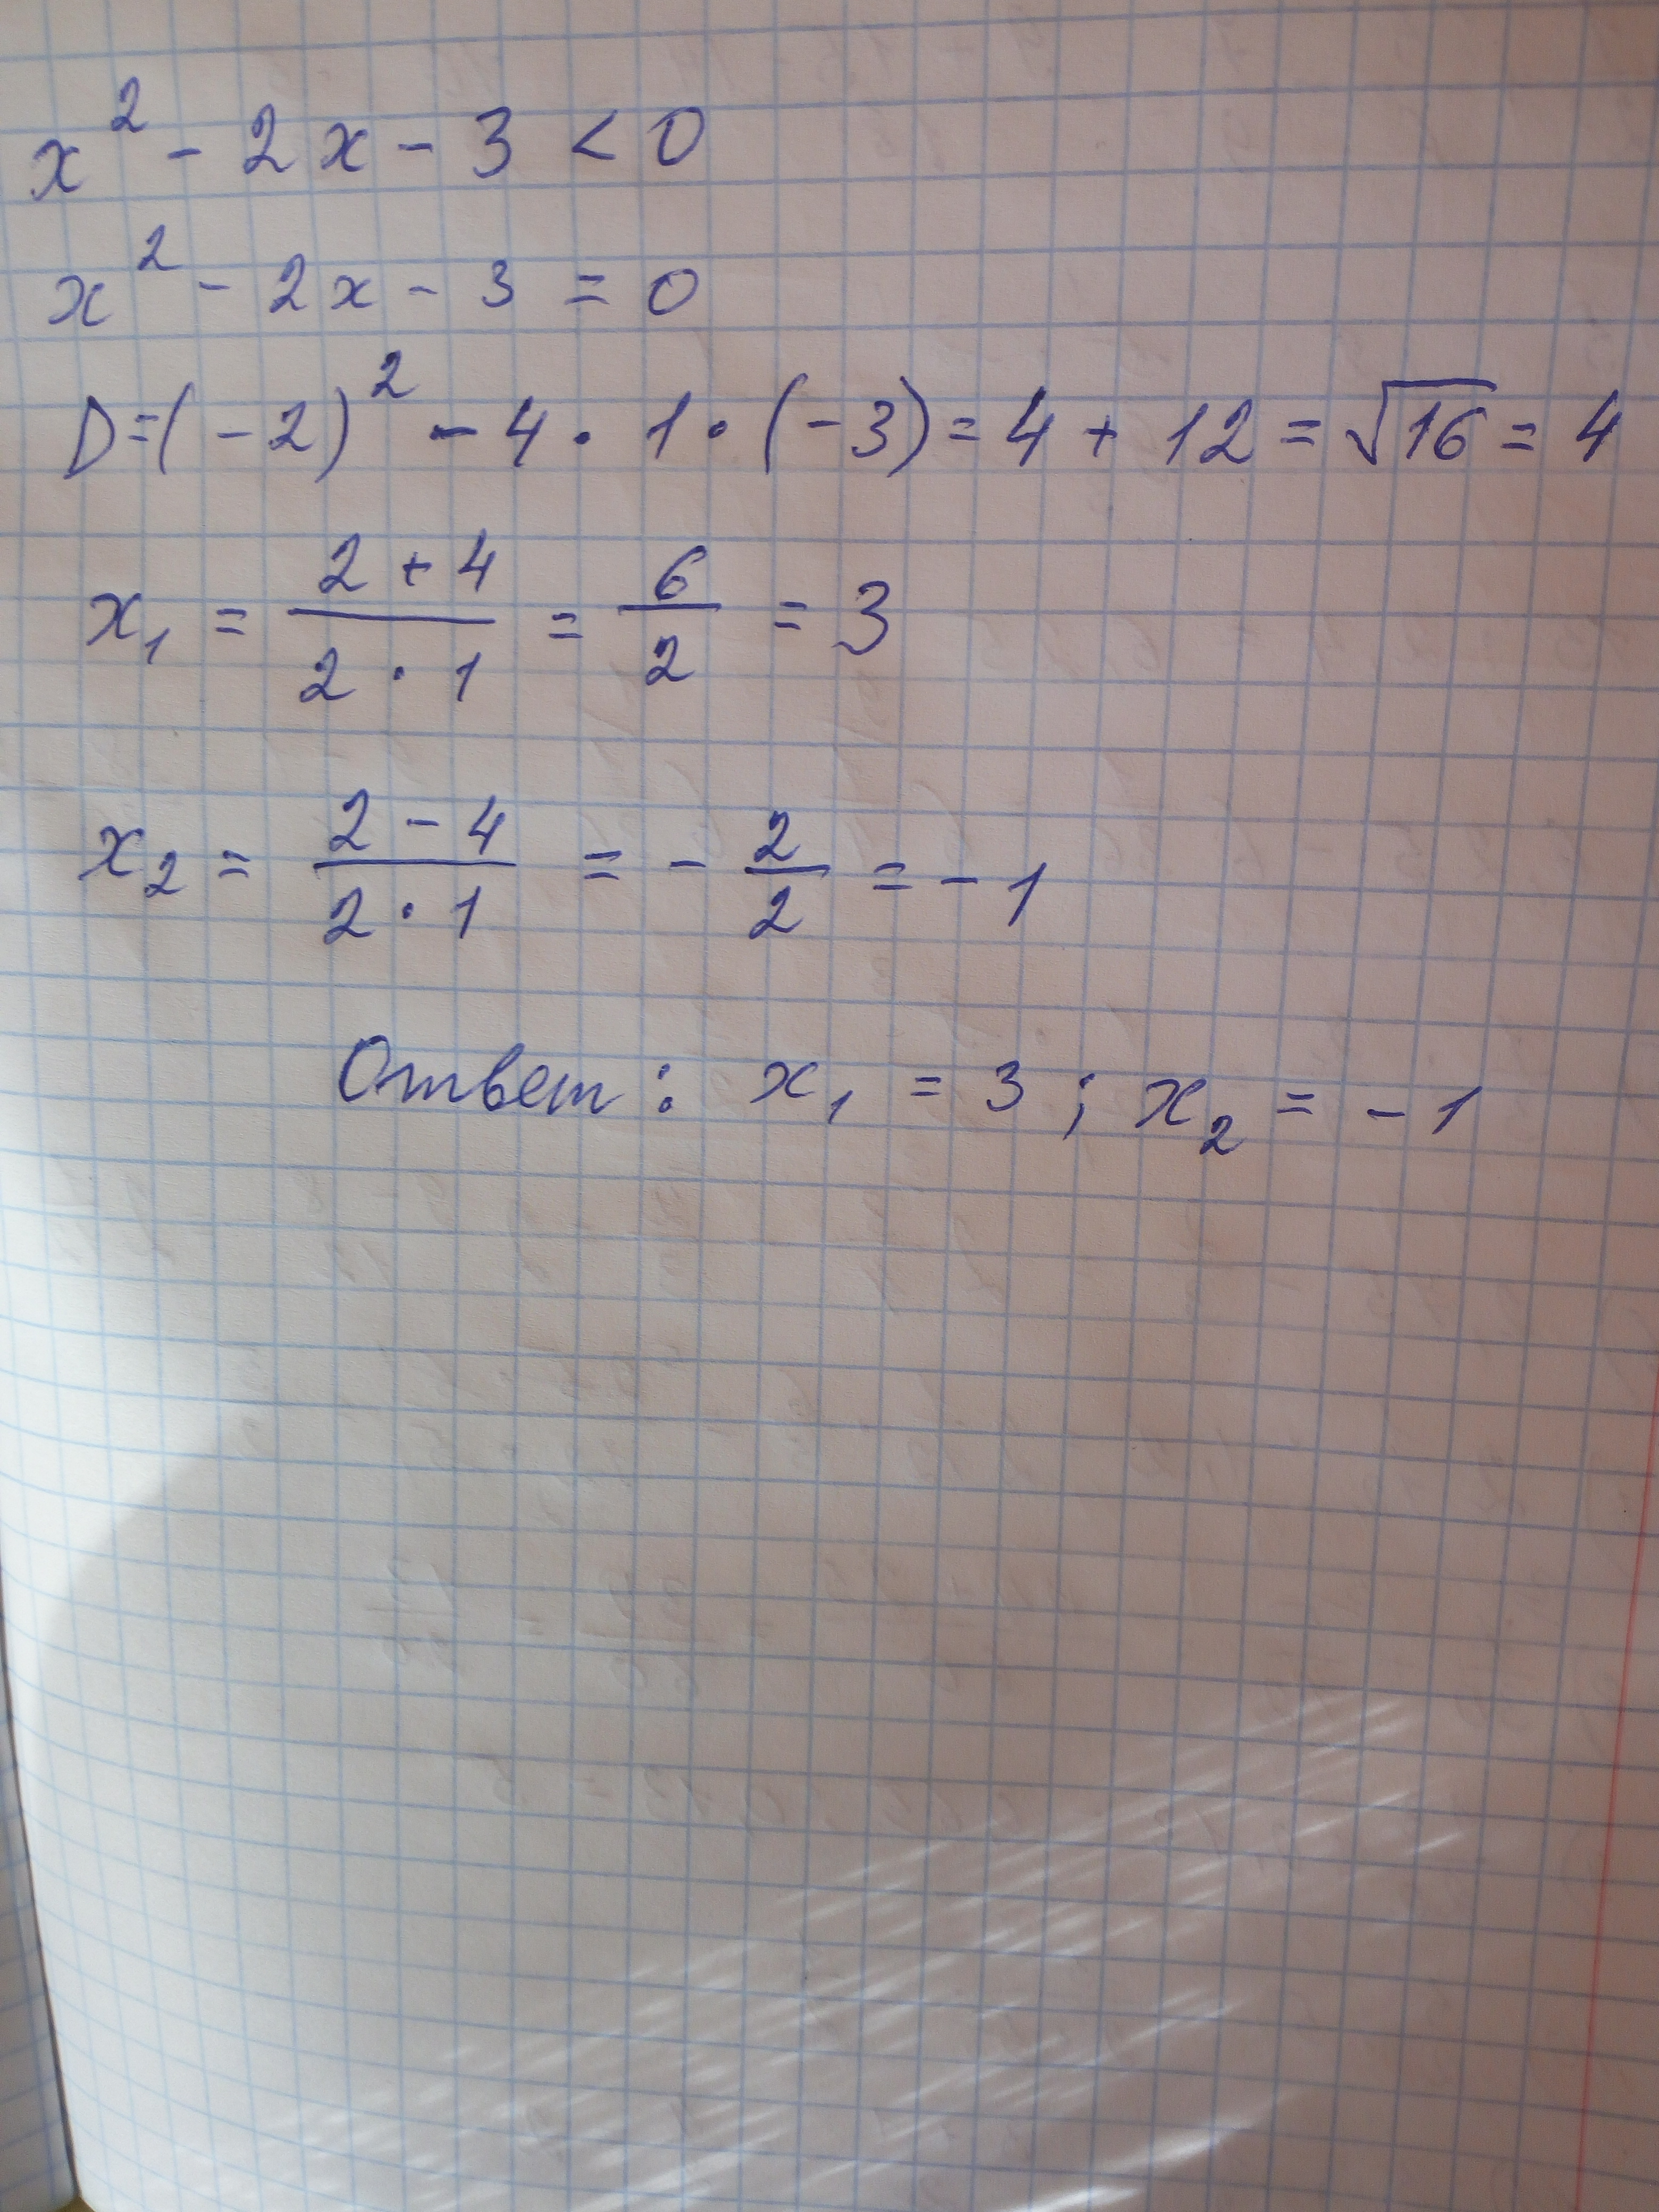 x² - 2x - 3 < 0
x² - 2x - 3 = 0
D=(-2)² - 4 · 1 · (-3) = 4 + 12 = √16 = 4
x₁ = (2 + 4)/(2 · 1) = 6/2 = 3
x₂ = (2 - 4)/(2 · 1) = - 2/2 = - 1
Ответ: x₁ = 3 ; x₂ = - 1